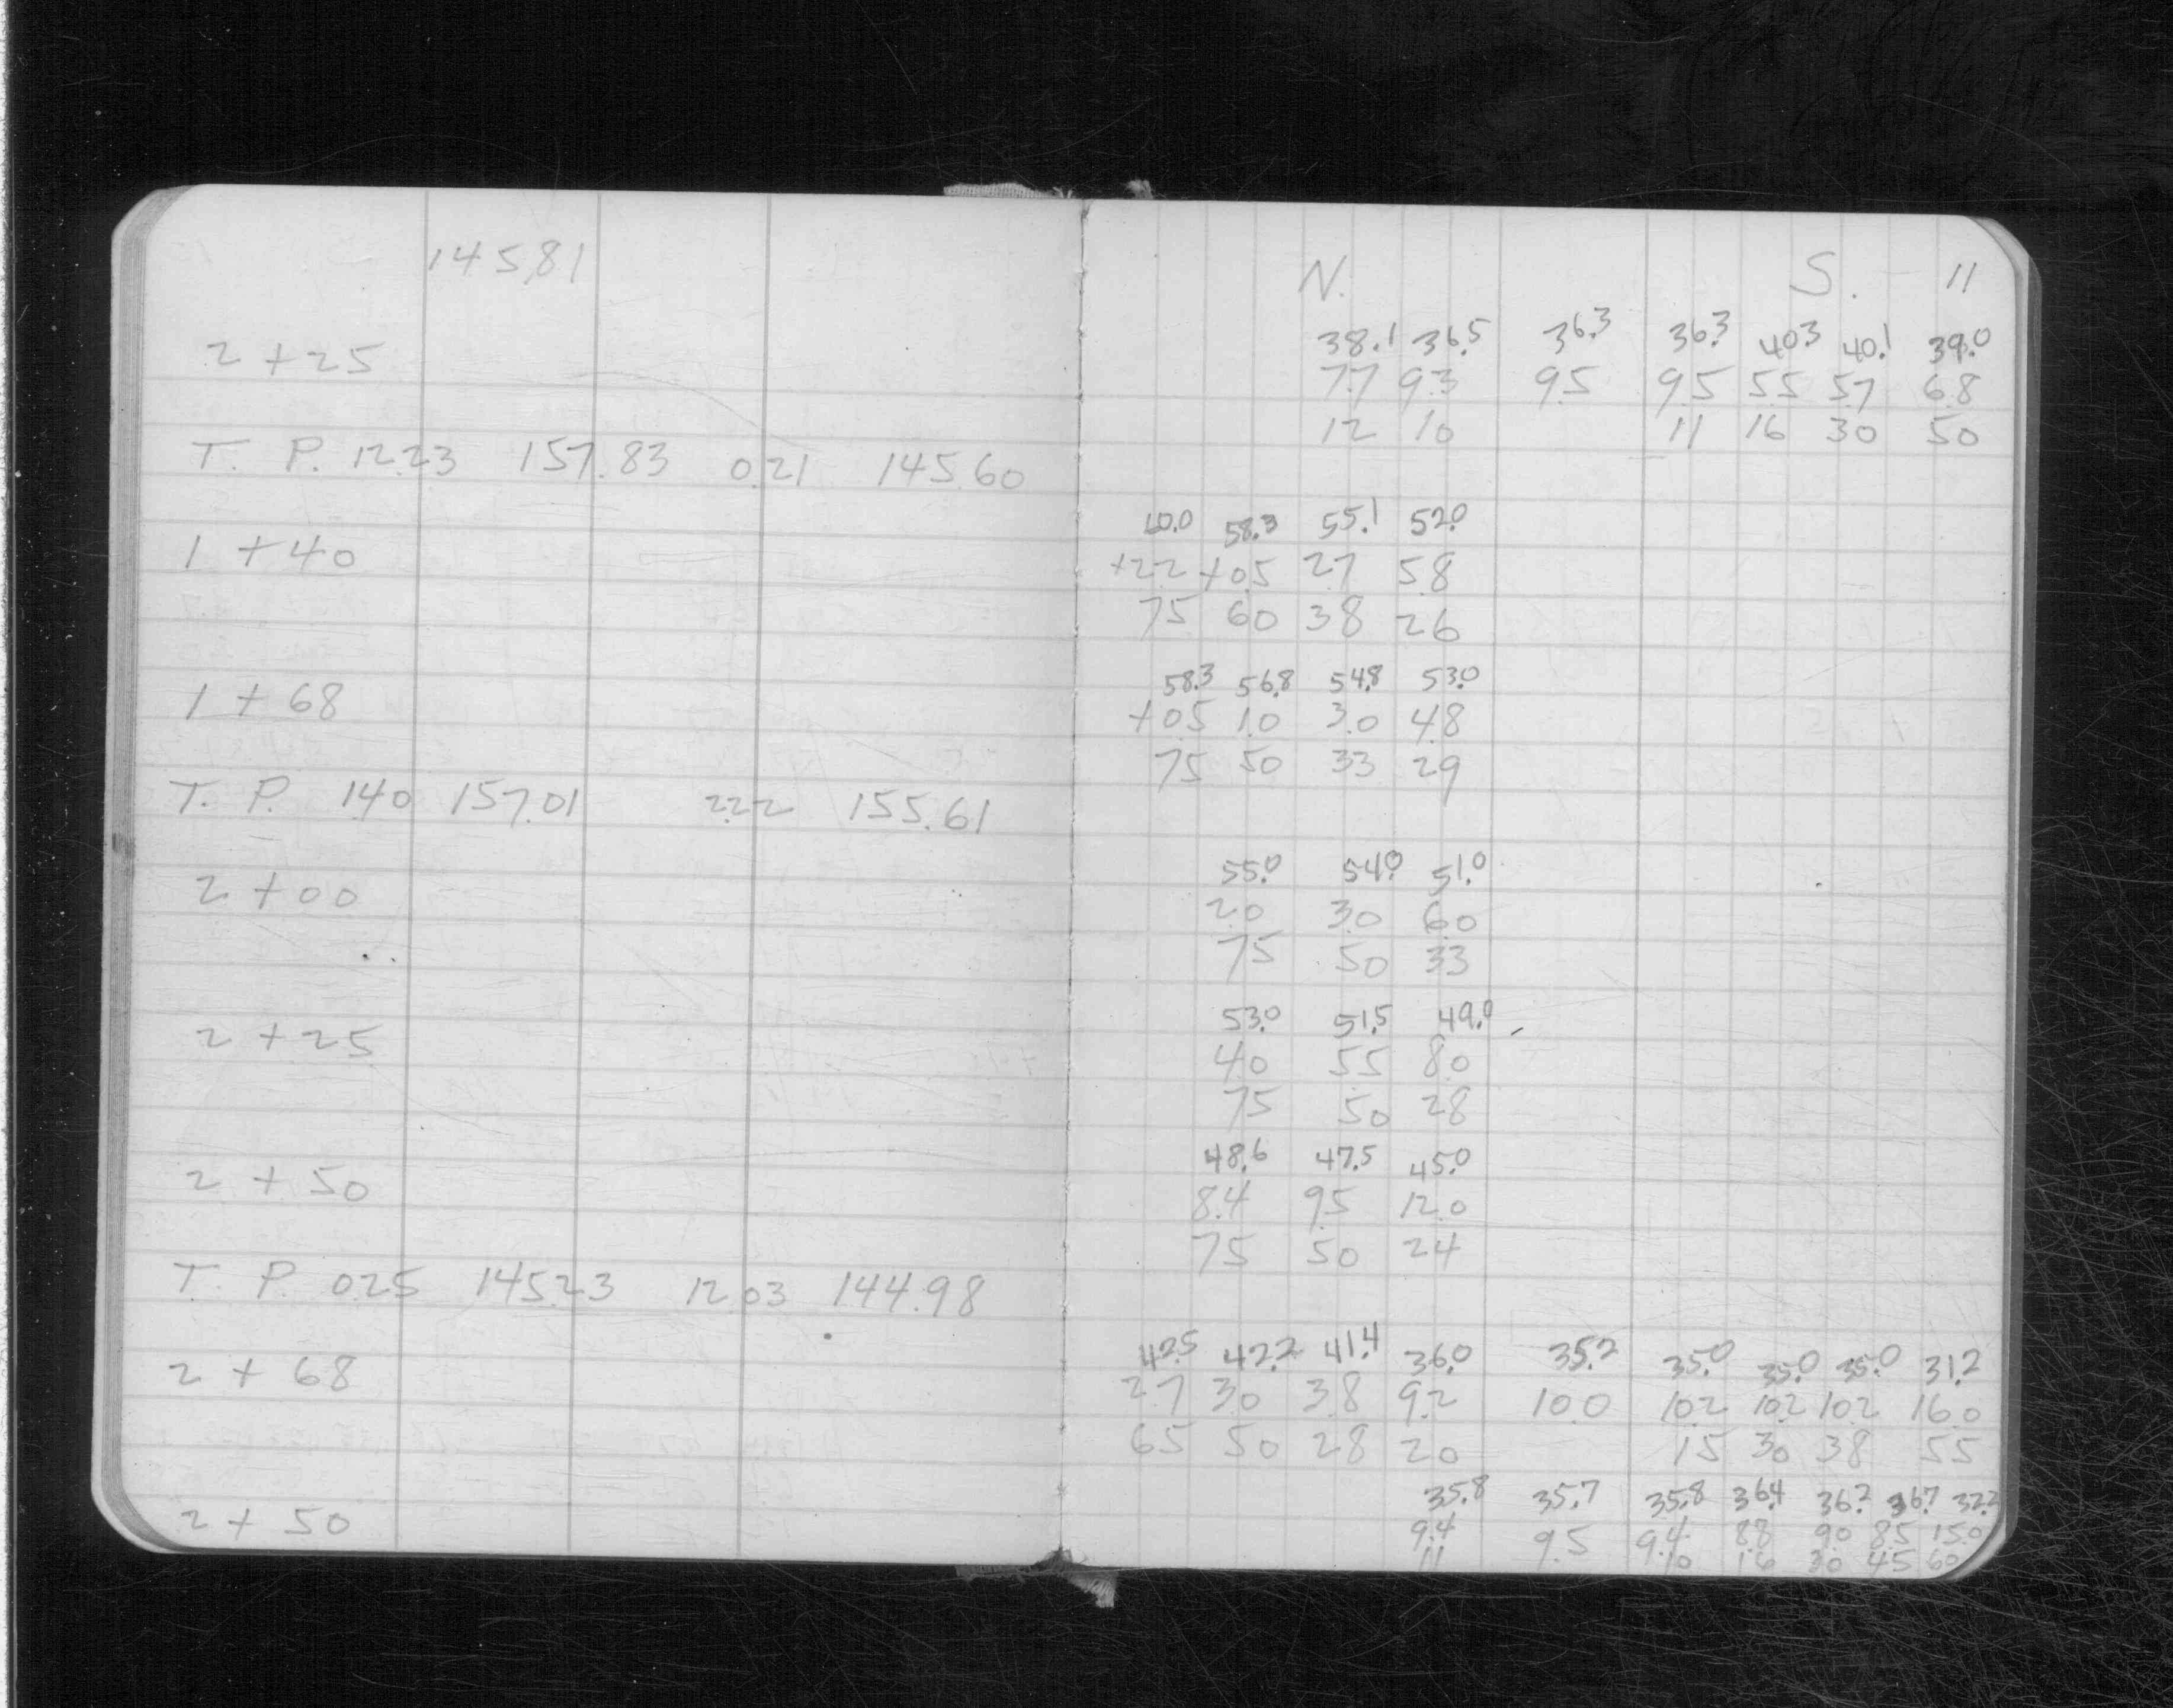 145.81
N. S. 11
38.1 36.5 36.3 36.3 40.3 40.1 39.0
2 + 25 7.7 9.3 9.5 9.5 5.5 5.7 6.8
12 10 11 16 30 50
T. P. 12.23 157.83 0.21 145.60
60.0 58.3 55.1 52.0
1 + 40 +2.2 +0.5 2.7 5.8
75 60 38 26
58.3 56.8 54.8 53.0
1 + 68 +0.5 1.0 3.0 4.8
75 50 33 29
T. P. 1.40 157.01 2.22 155.61
55.0 54.0 51.0
2 + 00 2.0 3.0 6.0
75 50 33
53.0 51.5 49.0
2 + 25 4.0 5.5 8.0
75 50 28
48.6 47.5 45.0
2 + 50 8.4 9.5 12.0
75 50 24
T. P. 0.25 145.23 12.03 144.98
42.5 42.2 41.4 36.0 35.2 35.0 35.0 35.0 31.2
2 + 68 2.7 3.0 3.8 9.2 10.0 10.2 10.2 10.2 16.0
65 50 28 20 15 30 38 55
35.8 35.7 35.8 36.4 36.2 36.7 32.2
2 + 50 9.4 9.5 9.4 8.8 9.0 8.5 15.0
11 10 16 30 45 60